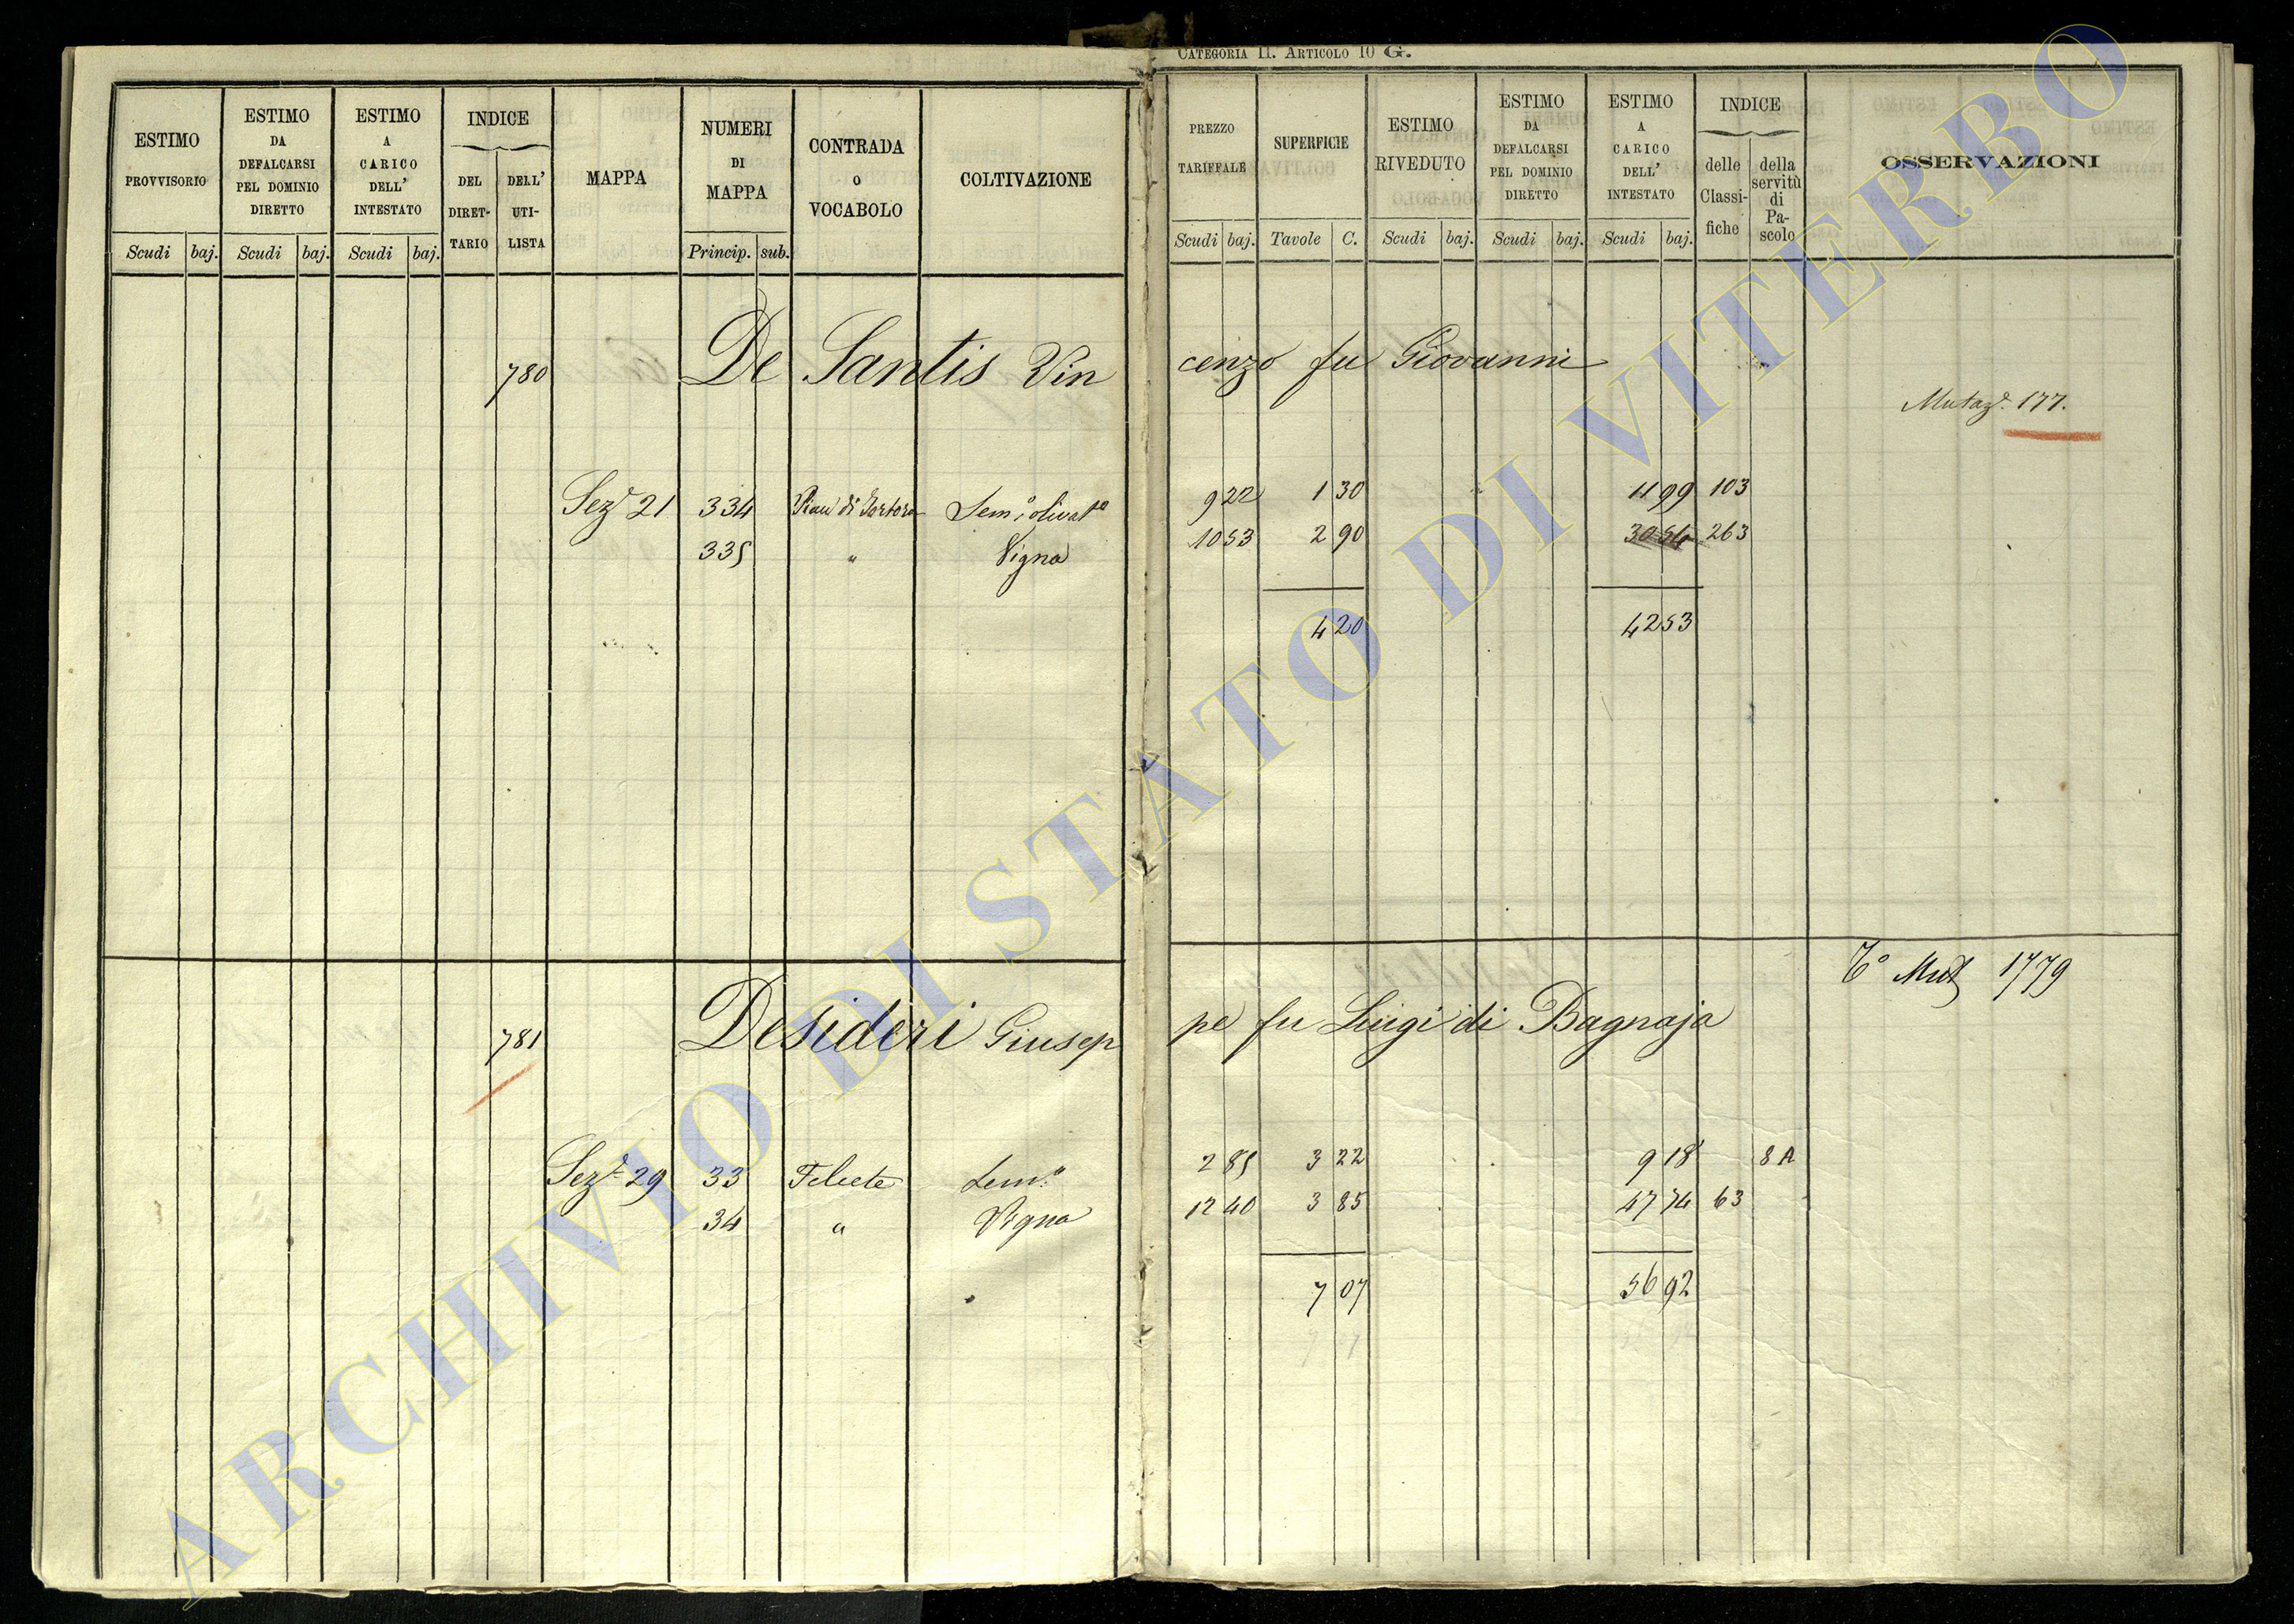 CATEGORIA II. ARTICOLO 10 G.
ESTIMO PROVVISORIO Scudi baj.
ESTIMO DA DEFALCARSI PEL DOMINIO DIRETTO Scudi baj.
ESTIMO A CARICO DELL' INTESTATO Scudi baj.
INDICE DEL DIRET-TARIO DELL' UTI-LISTA
MAPPA
NUMERI DI MAPPA Princip. sub.
CONTRADA O VOCABOLO
COLTIVAZIONE
PREZZO TARIFFALE Scudi baj.
SUPERFICIE Tavole C.
ESTIMO RIVEDUTO Scudi baj.
ESTIMO DA DEFALCARSI PEL DOMINIO DIRETTO Scudi baj.
ESTIMO A CARICO DELL' INTESTATO Scudi baj.
INDICE delle Classi-fiche della servitù di Pa-scolo
OSSERVAZIONI
780 De Santis Vincenzo fu Giovanni
Mutaz. 177.
Sez. 21 334 Pian di Tortora Sem.o olivat.o 9 22 1 30 11 99 103
335 " Vigna 10 53 2 90 30 54 263
4 20 42 53
Mut 1779
781 Desideri Giuseppe fu Luigi di Bagnaja
Sez. 29 33 Felcete Sem.o 2 85 3 22 9 18 8 A
34 " Vigna 12 40 3 85 47 74 63
7 07 56 92
ARCHIVIO DI STATO DI VITERBO